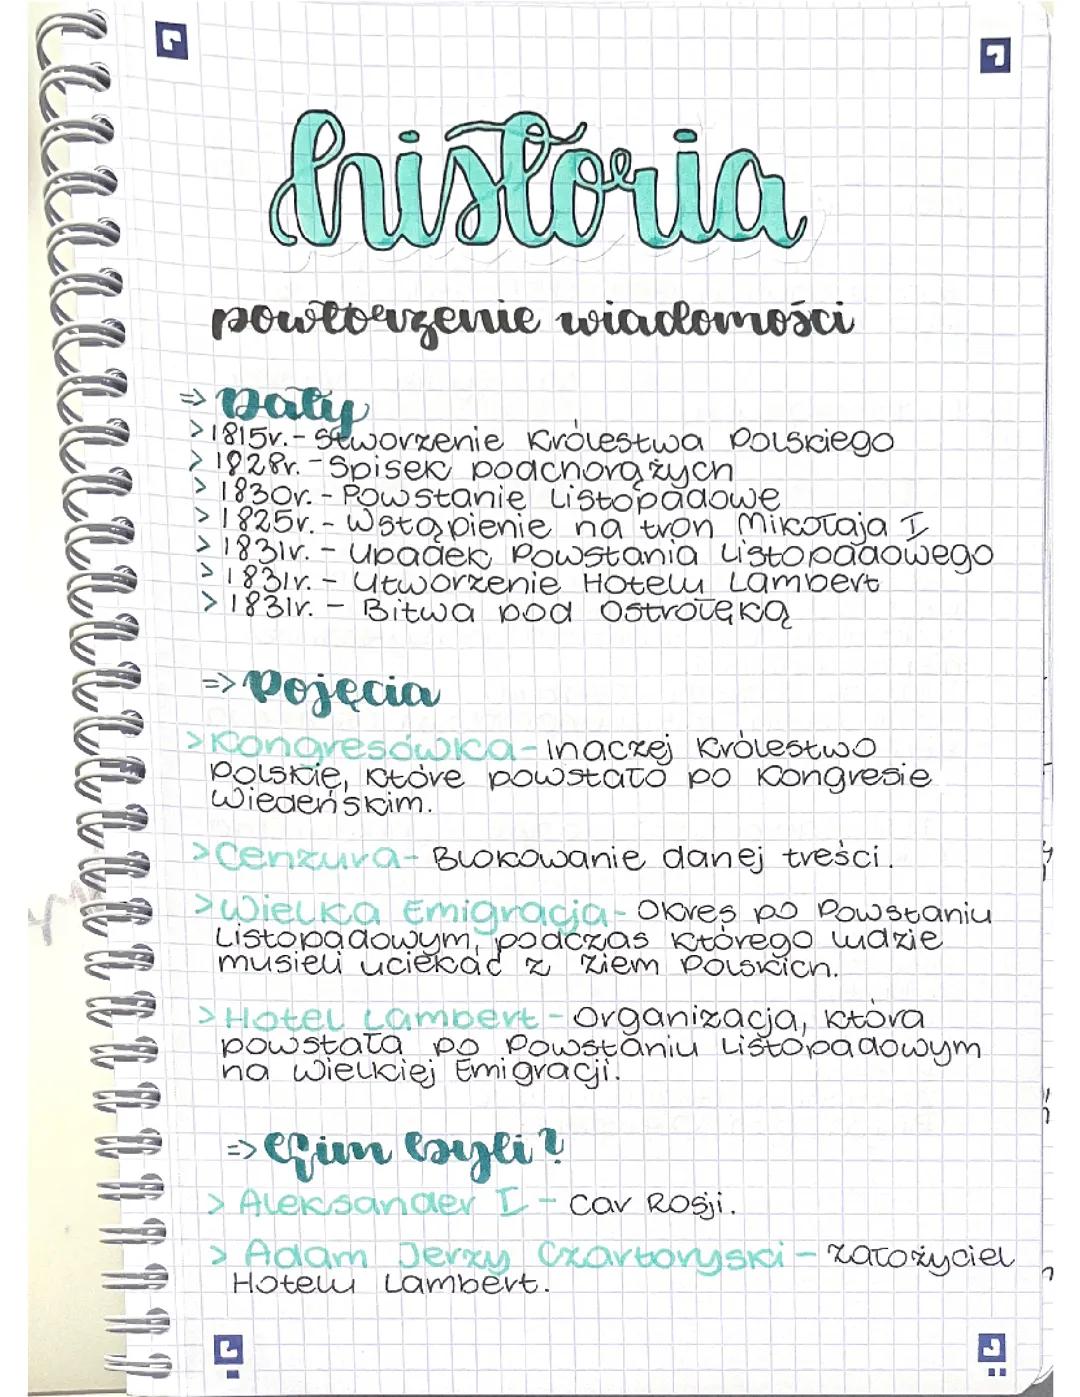 historia
powtórzenie wiadomości
=> Daty
>1815r.- Stworzenie Królestwa Polskiego
> 1828r. - Spisek podchorążych
> 1830r. - Powstanie Listopadowe
> 1825r. - Wstąpienie na tron Mikołaja I
> 1831r. - Upadek Powstania Listopadowego
> 1831r. - Utworzenie Hotelu Lambert
> 1831r. - Bitwa pod Ostrołęką
=> Pojęcia
>Kongresówka- inaczej Królestwo
Polskie, które powstało po Kongresie
Wiedeńskim.
>Cenzura- Blokowanie danej treści.
>Wielka Emigracja- Okres po Powstaniu
Listopadowym, podczas którego ludzie
musieli uciekać z ziem Polskich.
>Hotel Lambert - Organizacja, która
powstała po Powstaniu Listopadowym
na Wielkiej Emigracji.
=> Kim byli?
> Aleksander I - Car Rosji.
> Adam Jerzy Czartoryski - założyciel
Hotelu Lambert.